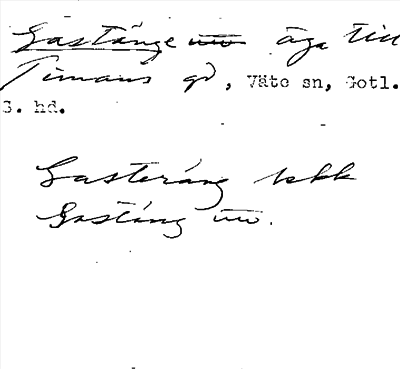 Gastänge äga till
Timans gd, Väte sn, Gotl.
S. hd.
Gasteräng
Gastäng uu.